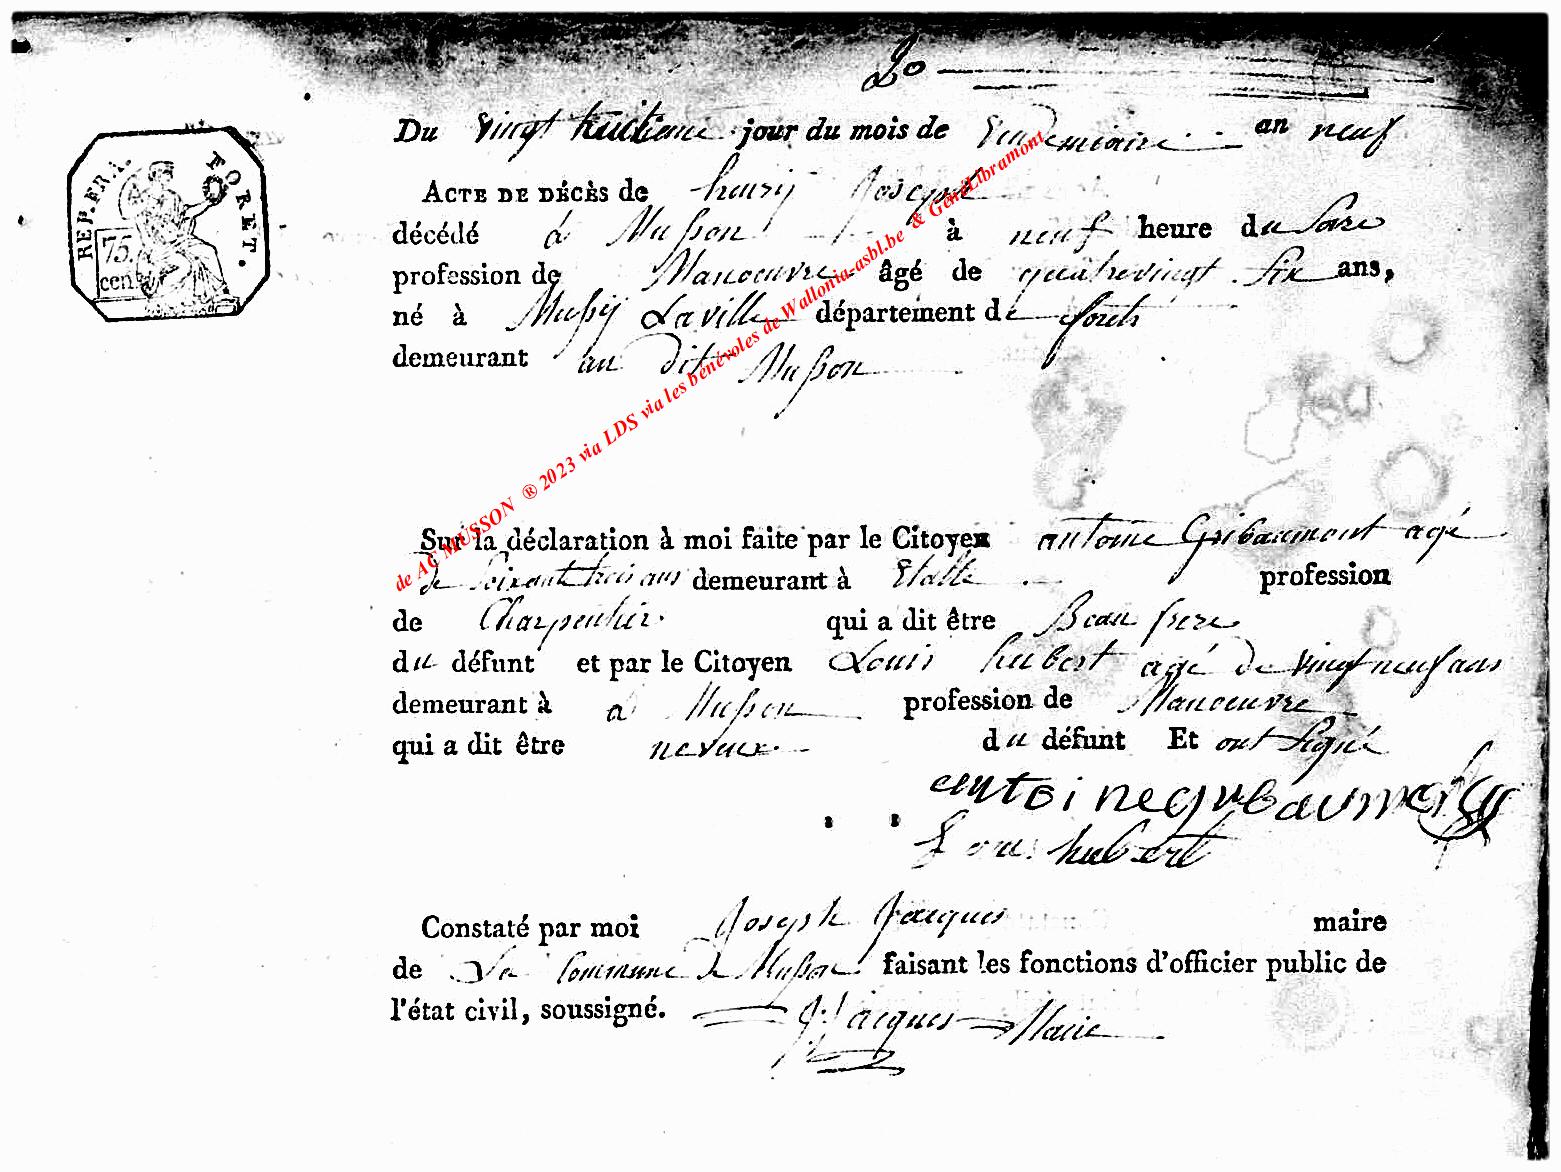 2o
Du vingt huitieme jour du mois de vendemiaire an neuf
ACTE DE DÉCÈS de henrij Joseph
décédé à Musson à neuf heure du soire
profession de Manoeuvre âgé de quatrevingt six ans,
né à Mussij Laville département de forets
demeurant au dit Musson
REP. FRA. FORET.
75.
cent
de AC MUSSON ® 2023 via LDS via les bénévoles de Wallonia-asbl.be & GénéLibramont
Sur la déclaration à moi faite par le Citoyen antoine Gribaumont agé
de soixant trois ans demeurant à Etalle profession
de Charpentier qui a dit être Beau frere
du défunt et par le Citoyen Louis hubert agé de vingt neuf ans
demeurant à à Musson profession de Manoeuvre
qui a dit être neveux du défunt Et ont signé
antoine gribaumont
Louis hubert
Constaté par moi Joseph Jacques maire
de La Commune de Musson faisant les fonctions d'officier public de
l'état civil, soussigné. J: Jacques Maire